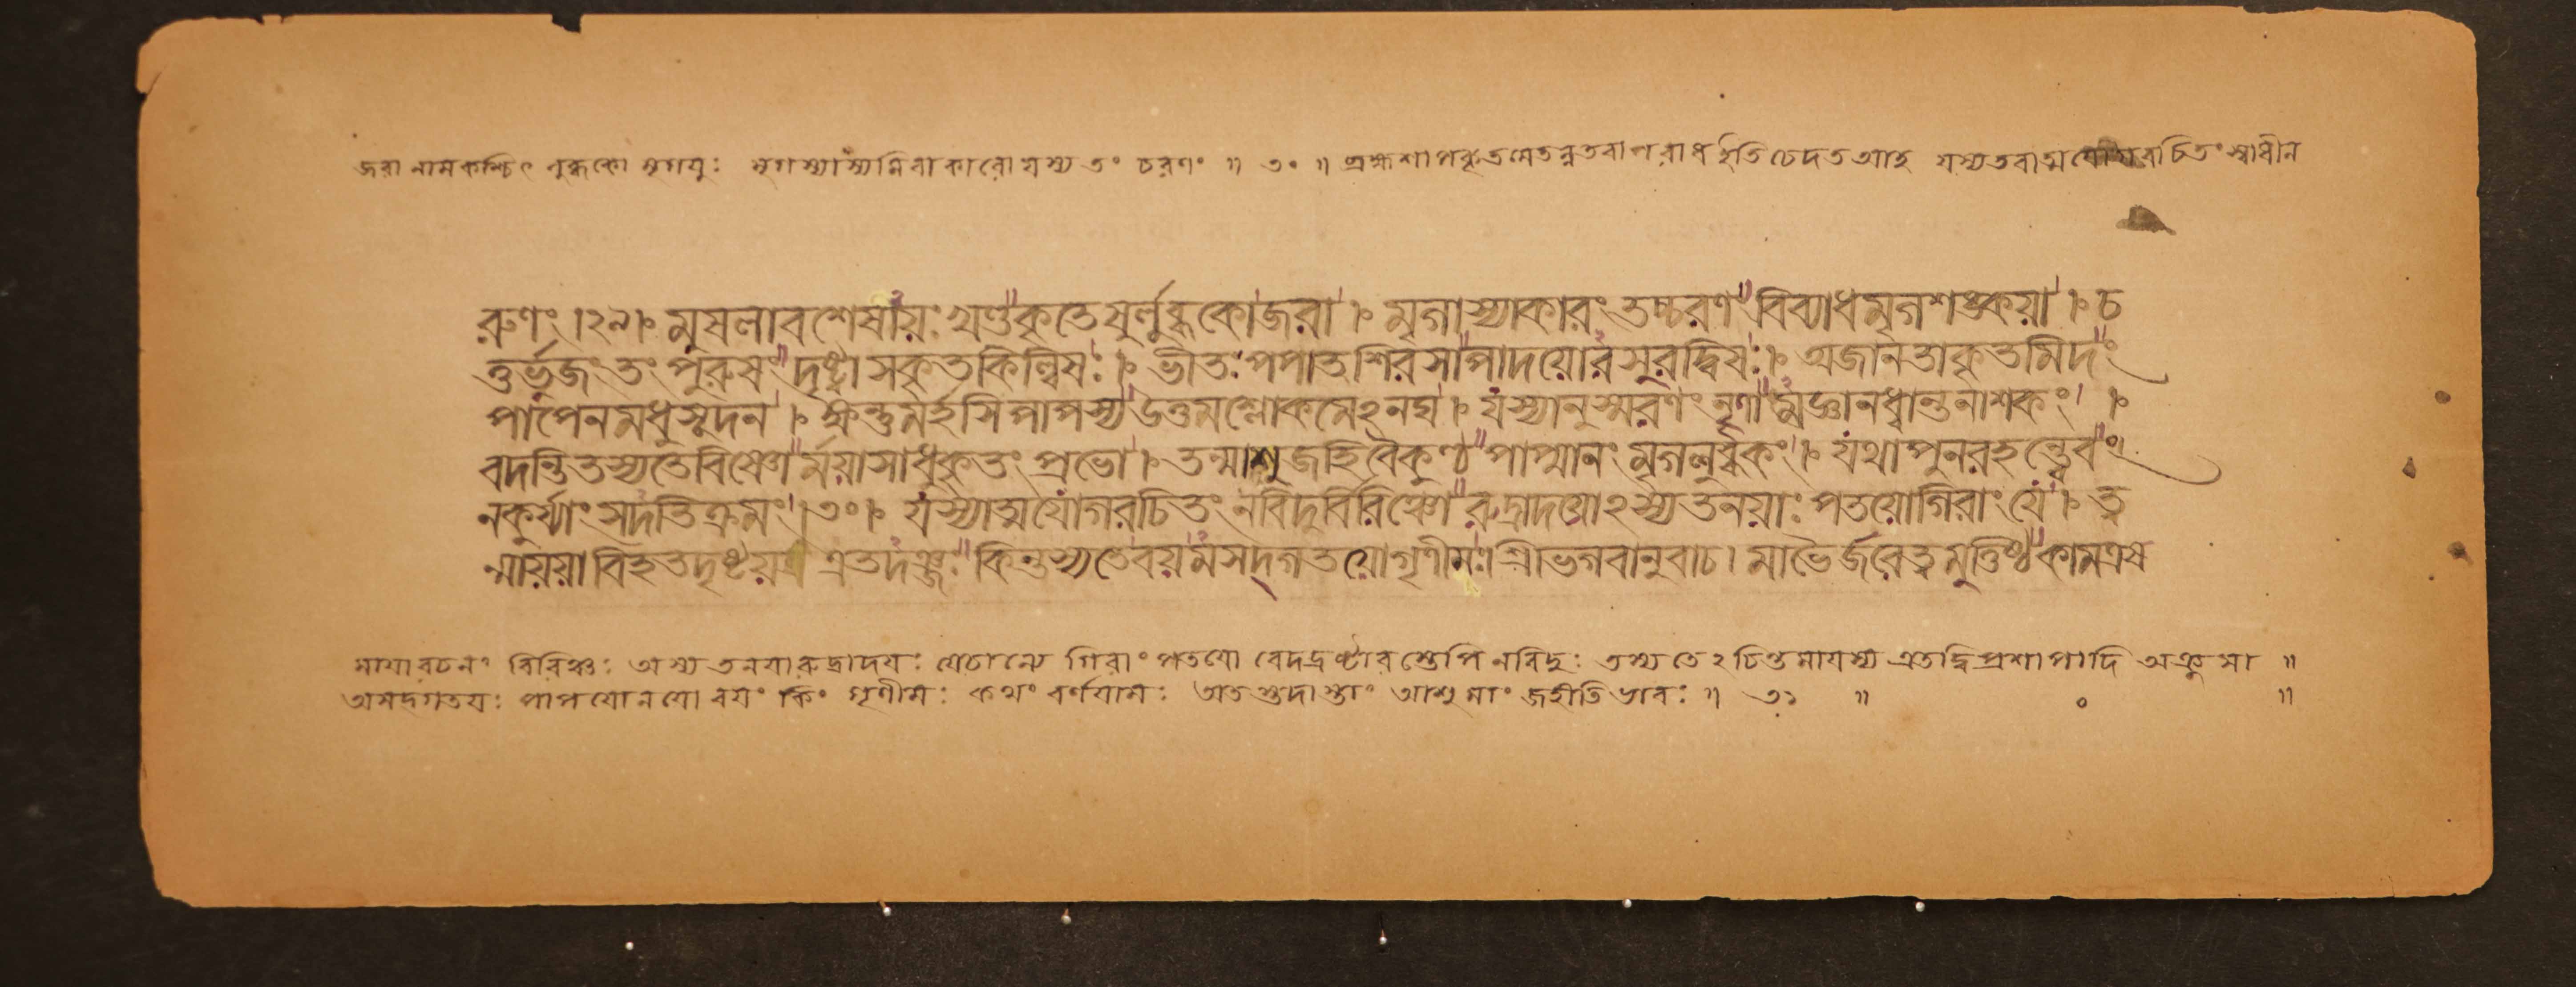 জরা নামকশ্চিৎ লুব্ধকো মৃগয়ুঃ মৃগস্যাস্যমিবাকারোযস্য তং চরণং ॥ ৩০ ॥ ব্রহ্মশাপকৃতমেতন্নতবাপরাধইতিচেদতআহ যস্যতবাত্মযোগরচিতং স্বাধীন
রুণং ।২৯। মুষলাবশেষায়ঃখণ্ডকৃতেষুর্লুব্ধকোজরা । মৃগাস্যাকারং তচ্চরণং বিব্যাধমৃগশঙ্কয়া । চ
তুর্ভুজং তং পুরুষং দৃষ্ট্বা সকৃতকিল্বিষঃ । ভীতঃ পপাত শিরসা পাদয়োরসুরদ্বিষঃ । অজানতাকৃতমিদং
পাপেনমধুসূদন । ক্ষন্তুমর্হসি পাপস্য উত্তমশ্লোকমেঽনঘ । যস্যানুস্মরণং নৃণামজ্ঞানধ্বান্তনাশকং ।
বদন্তি তস্যতেবিষ্ণো র্ময়াসাধুকৃতং প্রভো । তন্মাশুজহিবৈকুণ্ঠ পাপ্মানং মৃগলুব্ধকং । যথাপুনরহন্ত্বেবং
নকুর্য্যাং সদতিক্রমং ।৩০। যস্যাত্মযোগরচিতং নবিদুর্বিরিঞ্চো রুদ্রাদয়োঽস্যতনয়াঃ পতয়োগিরাং যে । ত্ব
ন্মায়য়া বিহতদৃষ্টয় এতদঞ্জঃ কিন্তস্যতেবয়মসদ্গতয়োগৃণীমঃ। শ্রীভগবানুবাচ । মাভৈর্জরেত্বমুত্তিষ্ঠ কামএষ
মায়ারচনং বিরিঞ্চঃ অস্য তনয়ারুদ্রাদয়ঃ যেচান্যে গিরাং পতয়ো বেদদ্রষ্টারস্তেপি নবিদুঃ তস্য তেঽচিন্ত্যমায়স্য এতদ্বিপ্রশাপাদি অঞ্জসা ॥
অসদ্গতয়ঃ পাপযোনয়ো বয়ং কিং গৃণীমঃ কথং বর্ণয়ামঃ অতস্তদাস্তাং আশু মাং জহীতিভাবঃ ॥ ৩১ ॥ ০ ॥